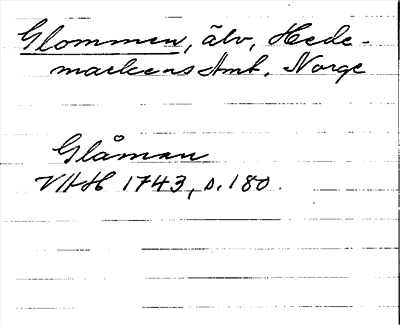 Glommen, älv, Hede-
markens Amt, Norge
Glåman
VHH 1743, s. 180.